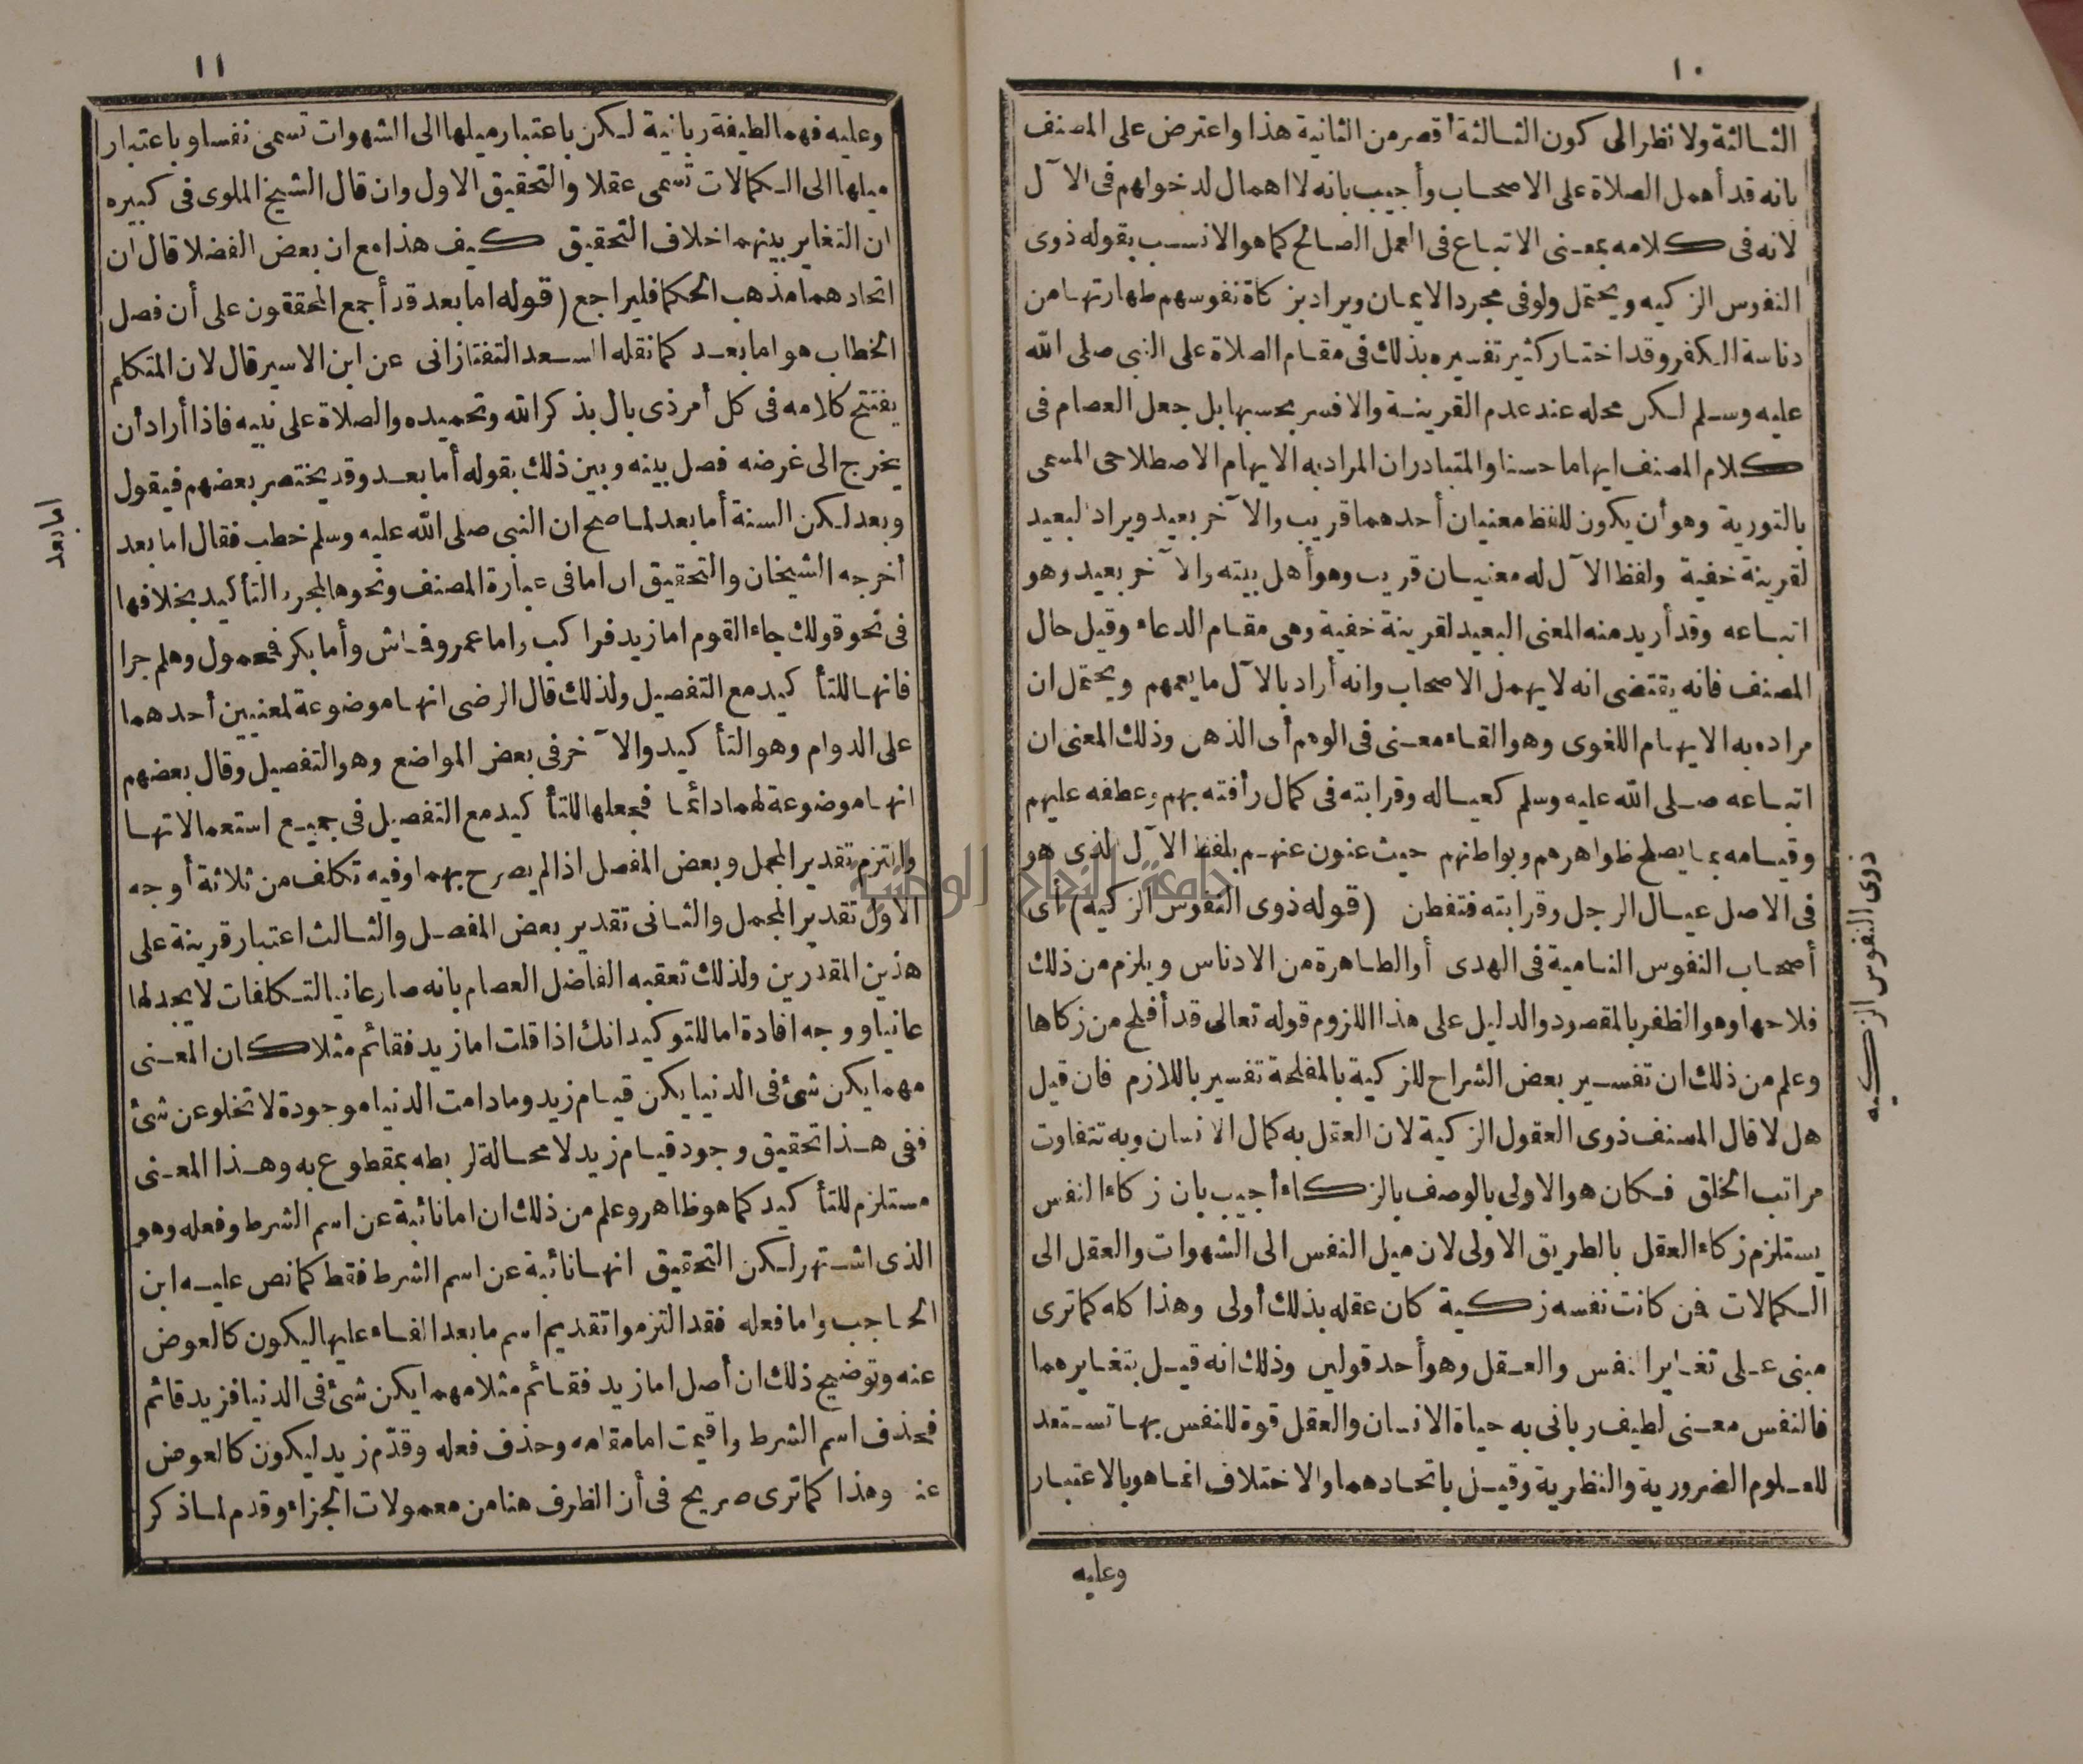 ١٠
الثالثة ولا نظر الى كون الثالثة أقصر من الثانية هذا واعترض على المصنف
بانه قد أهمل الصلاة على الاصحاب وأجيب بانه لا اهمال لدخولهم فى الآل
لانه فى كلامه بمعنى الاتباع فى العمل الصالح كما هو الانسب بقوله ذوى
النفوس الزكيه ويحتمل ولو فى مجرد الايمان ويراد بزكاة نفوسهم طهارتها من
دناسة الكفر وقد اختار كثير تفسيره بذلك فى مقام الصلاة على النبى صلى الله
عليه وسلم لكن محله عند عدم القرينة والا فسر بحسبها بل جعل العصام فى
كلام المصنف ايهاما حسنا والمتبادر ان المراد به الايهام الاصطلاحى المسمى
بالتورية وهو أن يكون للفظ معنيان أحدهما قريب والآخر بعيد ويراد البعيد
لقرينة خفية ولفظ الآل له معنيان قريب وهو أهل بيته والآخر بعيد وهو
اتباعه وقد أريد منه المعنى البعيد لقرينة خفية وهى مقام الدعاء وقيل حال
المصنف فانه يقتضى انه لا يهمل الاصحاب وانه أراد بالآل ما يعمهم ويحتمل ان
مراده به الايهام اللغوى وهو القاء معنى فى الوهم أى الذهن وذلك المعنى ان
اتباعه صلى الله عليه وسلم كعياله وقرابته فى كمال رأفته بهم وعطفه عليهم
وقيامه بما يصلح ظواهرهم وبواطنهم حيث عنون عنهم بلفظ الآل الذى هو
فى الاصل عيال الرجل وقرابته فتفطن (قوله ذوى النفوس الزكيه) أى
أصحاب النفوس النامية فى الهدى أو الطاهرة من الادناس ويلزم من ذلك
فلاحها وهو الظفر بالمقصود والدليل على هذا اللزوم قوله تعالى قد أفلح من زكاها
وعلم من ذلك ان تفسير بعض الشراح للزكية بالمفلحة تفسير باللازم فان قيل
هل لا قال المصنف ذوى العقول الزكية لان العقل به كمال الانسان وبه تتفاوت
مراتب الخلق فكان هو الاولى بالوصف بالزكاء أجيب بان زكاء النفس
يستلزم زكاء العقل بالطريق الاولى لان ميل النفس الى الشهوات والعقل الى
الكمالات فمن كانت نفسه زكية كان عقله بذلك أولى وهذا كله كما ترى
مبنى على تغاير النفس والعقل وهو أحد قولين وذلك انه قيل بتغايرهما
فالنفس معنى لطيف ربانى به حياة الانسان والعقل قوة للنفس بها تستعد
للعلوم الضرورية والنظرية وقيل باتحادهما والاختلاف انما هو بالاعتبار
وعليه
ذوى النفوس الزكيه
١١
وعليه فهما لطيفة ربانية لكن باعتبار ميلها الى الشهوات تسمى نفسا وباعتبار
ميلها الى الكمالات تسمى عقلا والتحقيق الاول وان قال الشيخ الملوى فى كبيره
ان التغاير بينهما خلاف التحقيق كيف هذا مع ان بعض الفضلا قال ان
اتحادهما مذهب الحكما فليراجع (قوله اما بعد قد أجمع المحققون على أن فصل
الخطاب هو اما بعد كما نقله السعد التفتازانى عن ابن الاسير قال لان المتكلم
يفتتح كلامه فى كل أمر ذى بال بذكر الله وتحميده والصلاة على نبيه فاذا أراد أن
يخرج الى غرضه فصل بينه وبين ذلك بقوله أما بعد وقد يختصر بعضهم فيقول
وبعد لكن السنة أما بعد لما صح ان النبى صلى الله عليه وسلم خطب فقال اما بعد
أخرجه الشيخان والتحقيق ان اما فى عبارة المصنف ونحوها لمجرد التأكيد بخلافها
فى نحو قولك جاء القوم اما زيد فراكب واما عمرو فماش وأما بكر فمحمول وهلم جرا
فانها للتأكيد مع التفصيل ولذلك قال الرضى انها موضوعة لمعنيين أحدهما
على الدوام وهو التأكيد والآخر فى بعض المواضع وهو التفصيل وقال بعضهم
انها موضوعة لهما دائما فجعلها للتأكيد مع التفصيل فى جميع استعمالاتها
والتزم تقدير المجمل وبعض المفصل اذا لم يصرح بهما وفيه تكلف من ثلاثة أوجه
الاول تقدير المجمل والثانى تقدير بعض المفصل والثالث اعتبار قرينة على
هذين المقدرين ولذلك تعقبه الفاضل العصام بانه صار عانيا لتكلفات لا يجد لها
عانيا ووجه افادة اما للتوكيد انك اذا قلت اما زيد فقائم مثلا كان المعنى
مهما يكن شئ فى الدنيا يكن قيام زيد وما دامت الدنيا موجودة لا تخلو عن شئ
ففى هذا تحقيق وجود قيام زيد لا محالة لربطه بمقطوع به وهذا المعنى
مستلزم للتأكيد كما هو ظاهر وعلم من ذلك ان اما نائبة عن اسم الشرط وفعله وهو
الذى اشتهر لكن التحقيق انها نائبة عن اسم الشرط فقط كما نص عليه ابن
الحاجب واما فعله فقد التزموا تقديم اسم ما بعد الفاء عليها ليكون كالعوض
عنه وتوضيح ذلك ان أصل اما زيد فقائم مثلا مهما يكن شئ فى الدنيا فزيد قائم
فحذف اسم الشرط واقيمت اما مقامه وحذف فعله وقدّم زيد ليكون كالعوض
عنه وهذا كما ترى صريح فى أن الظرف هنا من معمولات الجزاء وقدم لما ذكر
اما بعد
جامعة النجاح الوطنية